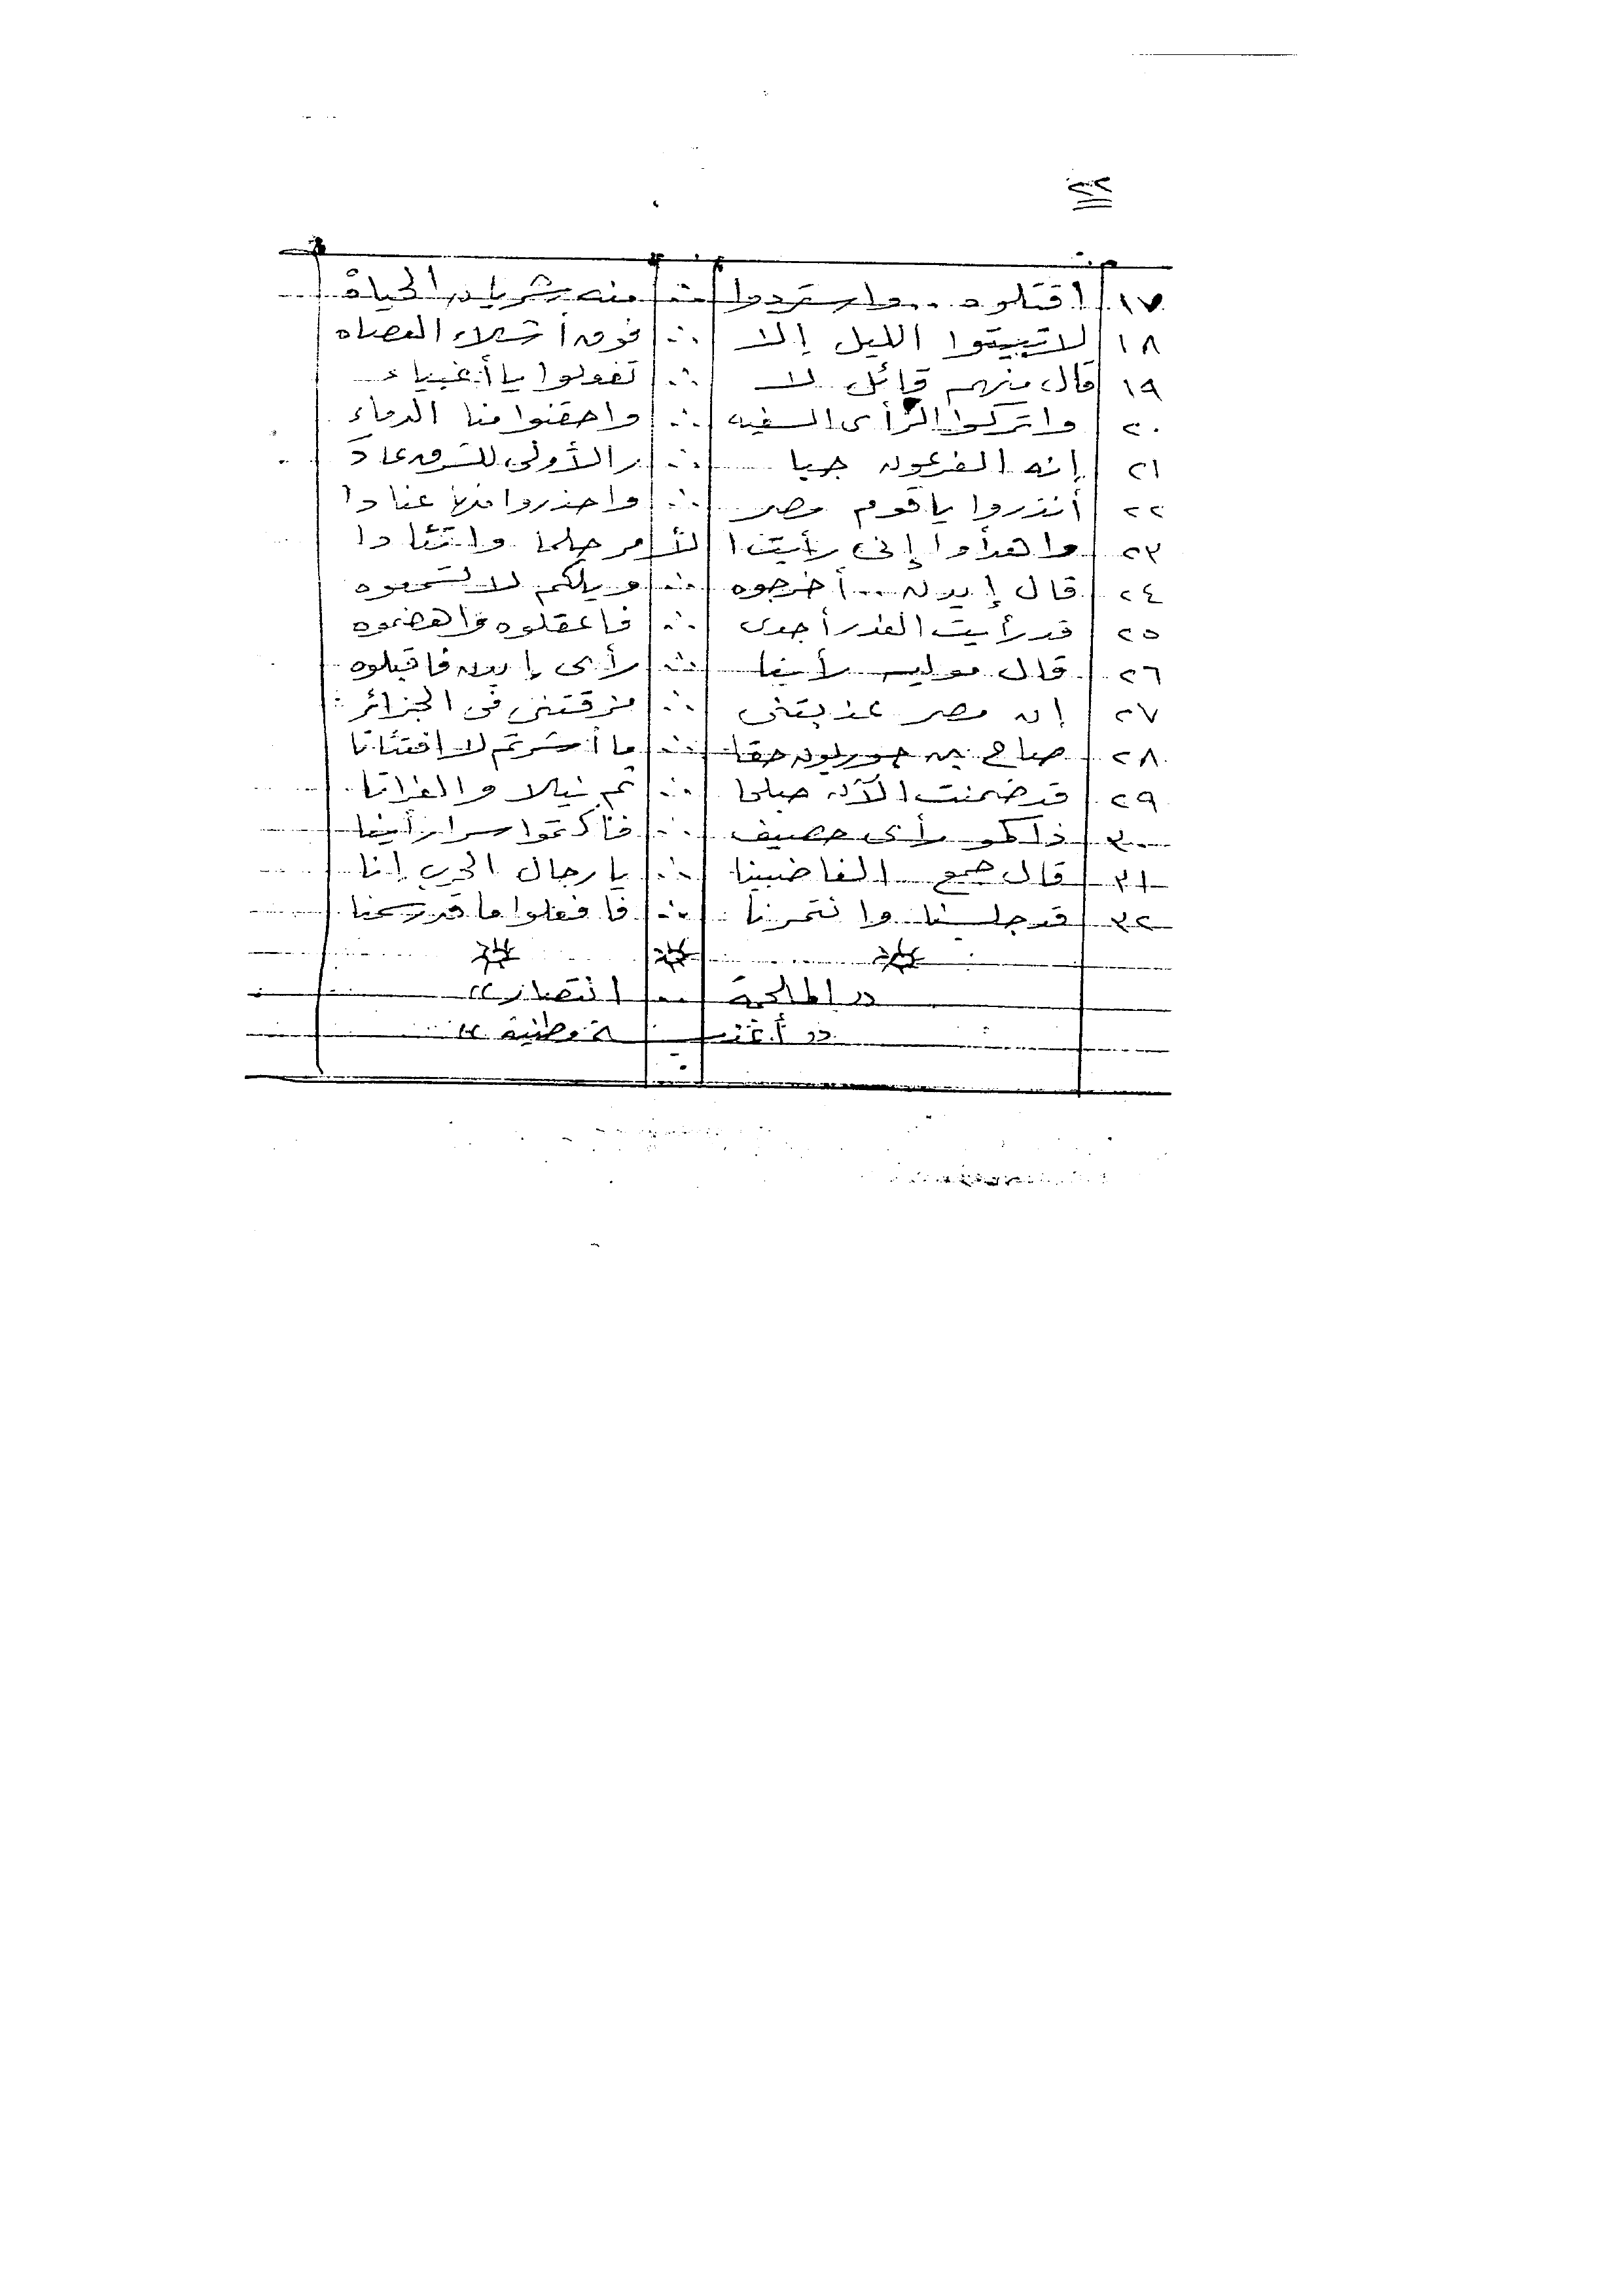 ٢٢
١٧ اقتلوه .. واستردوا ∴ منه شريان الحياة
١٨ لا تبيتوا الليل إلا ∴ فوق أشلاء العصاه
١٩ قال منهم قائل لا ∴ تفعلوا يا أغبياء
٢٠ واتركوا الرأى السفيه ∴ واحقنوا منا الدماء
٢١ إنه الفرعون جبا ∴ ر الأولى للشرق عاد
٢٢ أنذروا يا قوم مصر ∴ واحذروا منها عنادا
٢٣ واهدأوا إنى رأيت ا لأمر حلما واتئادا
٢٤ قال إيدن ... أخرجوه ∴ ويلكم لا تسمعوه
٢٥ قد رأيت الغدر أجدى ∴ فاعقلوه واهضموه
٢٦ قال موليه رأينا ∴ رأى إيدن فاقبلوه
٢٧ إن مصر عذبتنى ∴ مزقتنى فى الجزائر
٢٨ صاح بن جوريون حقا ∴ ما أشرتم لا افتئاتا
٢٩ قد ضمنت الآن صلحا ∴ ثم نيلا والفراتا
٣٠ ذلكمو رأى حصيف ∴ فاكتموا سرا رأينا
٣١ قال جمع الغاضبينا ∴ يا رجال الحرب إنا
٣٢ قد جلسنا وائتمرنا ∴ فافعلوا ما قد رسمنا
"الملحمة .. انتصار"
"أغنية وطنية"